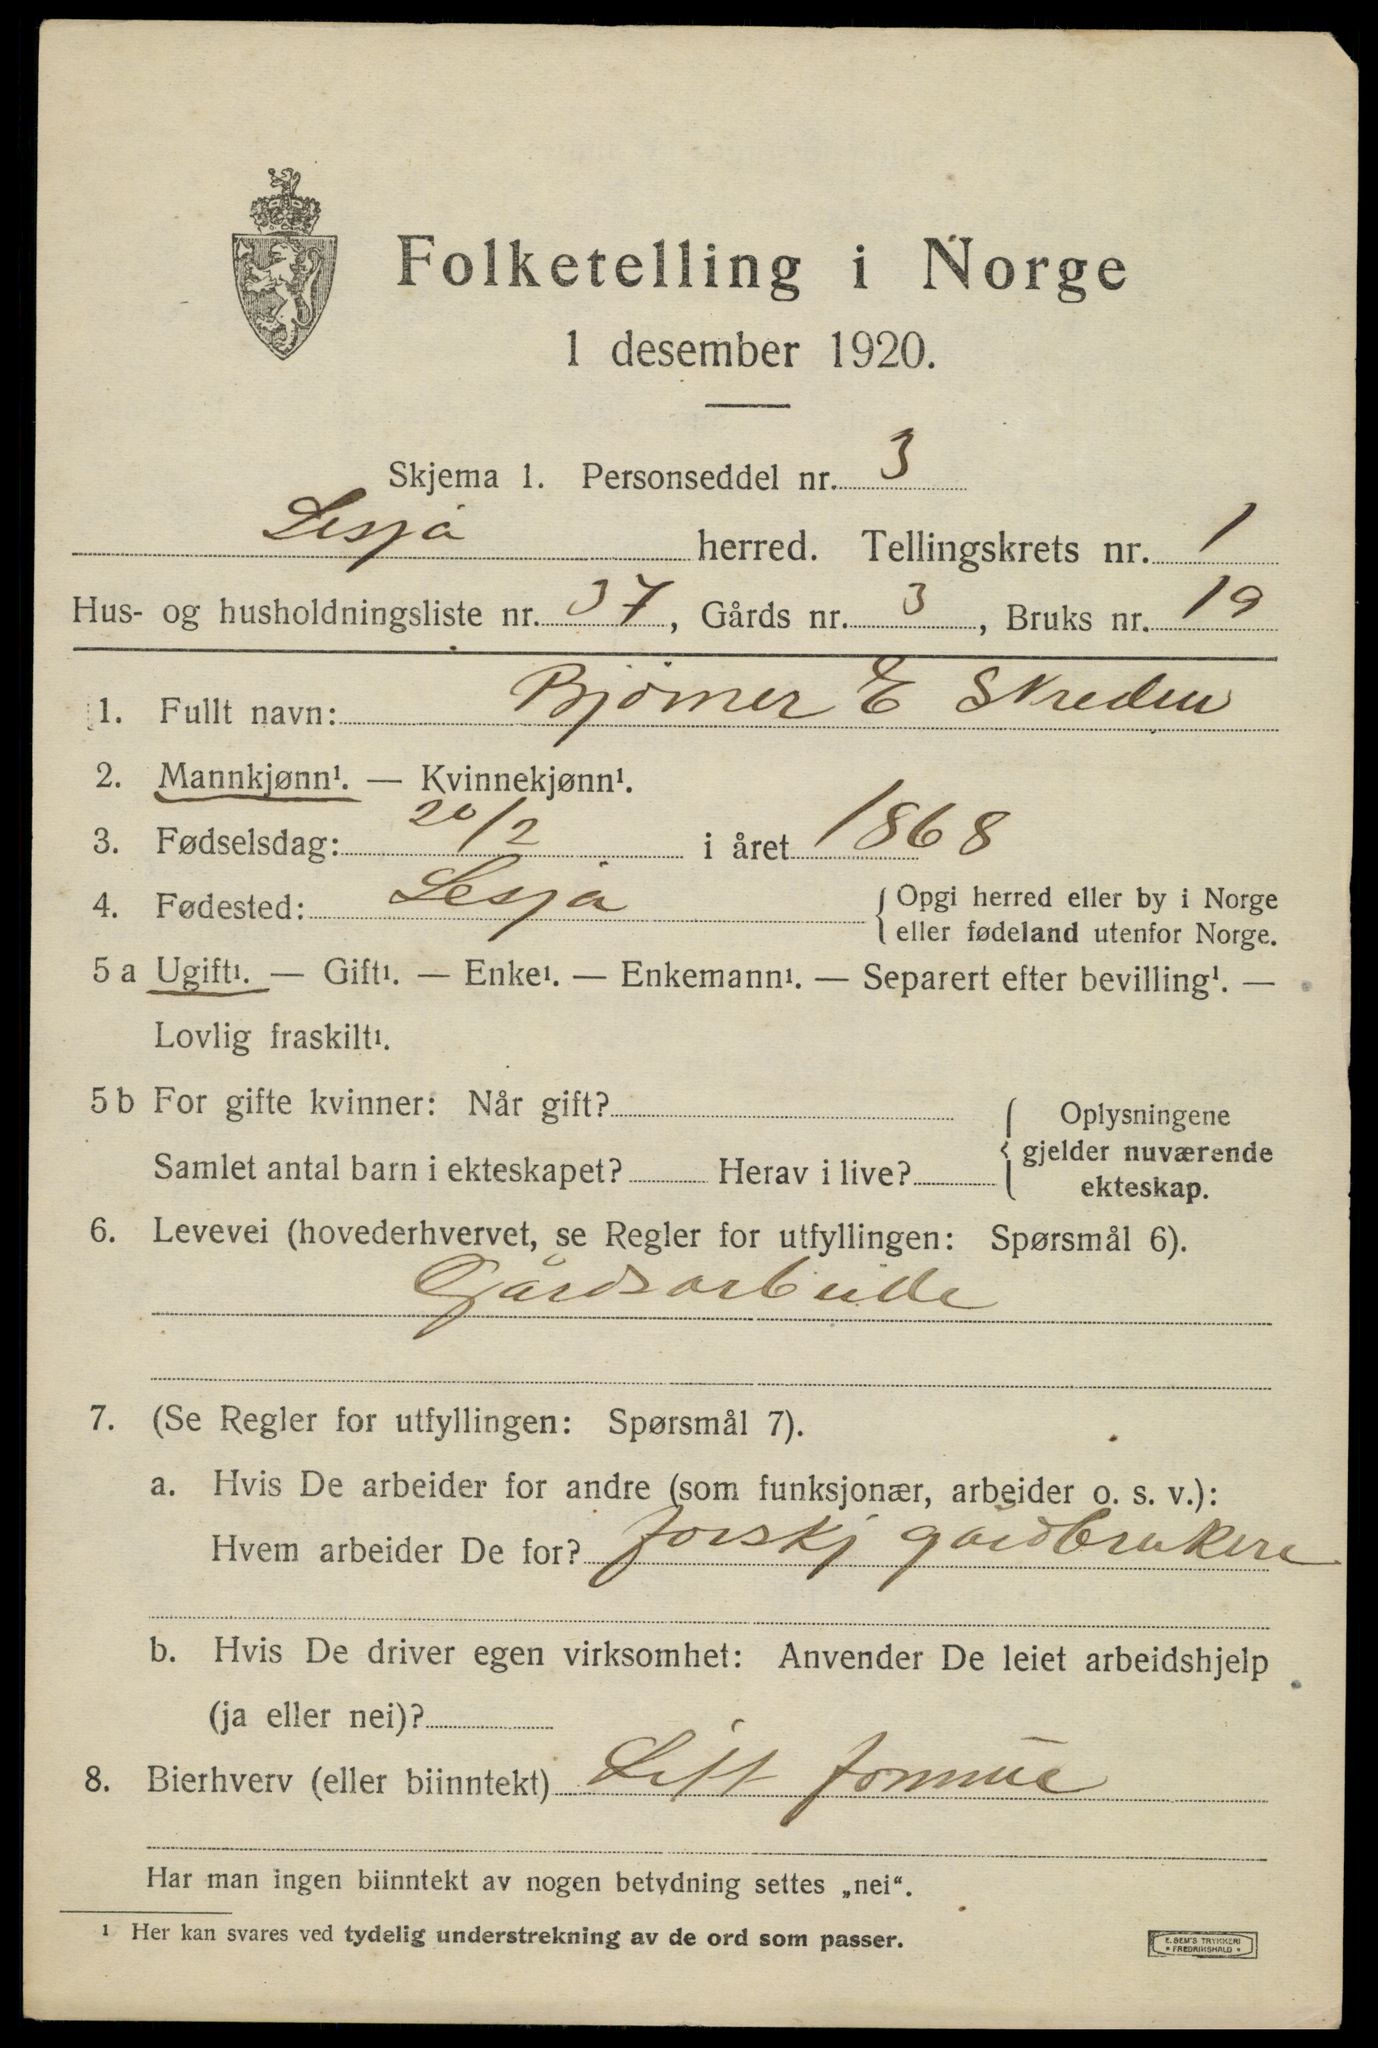 Folketelling i Norge
1 desember 1920.
Skjema 1. Personseddel nr. 3
Lesja herred. Tellingskrets nr. 1
Hus- og husholdningsliste nr. 37, Gårds nr. 3, Bruks nr. 19
1. Fullt navn: Bjørner E Skreden
2. Mannkjønn¹. — Kvinnekjønn¹.
3. Fødselsdag: 20/2 i året 1868
4. Fødested: Lesja { Opgi herred eller by i Norge
eller fødeland utenfor Norge.
5 a Ugift¹. — Gift¹. — Enke¹. — Enkemann¹. — Separert efter bevilling¹. —
Lovlig fraskilt¹.
5 b For gifte kvinner: Når gift? { Oplysningene
gjelder nuværende
Samlet antal barn i ekteskapet? Herav i live?
ekteskap.
6. Levevei (hovederhvervet, se Regler for utfyllingen: Spørsmål 6).
Gårdsarbeide
7. (Se Regler for utfyllingen: Spørsmål 7).
a. Hvis De arbeider for andre (som funksjonær, arbeider o. s. v.):
Hvem arbeider De for? forskj gårdbrukere
b. Hvis De driver egen virksomhet: Anvender De leiet arbeidshjelp
(ja eller nei)?
8. Bierhverv (eller biinntekt)
Har man ingen biinntekt av nogen betydning settes „nei“.
¹ Her kan svares ved tydelig understrekning av de ord som passer.
E. SEM'S TRYKKERI
• FREDRIKSHALD •